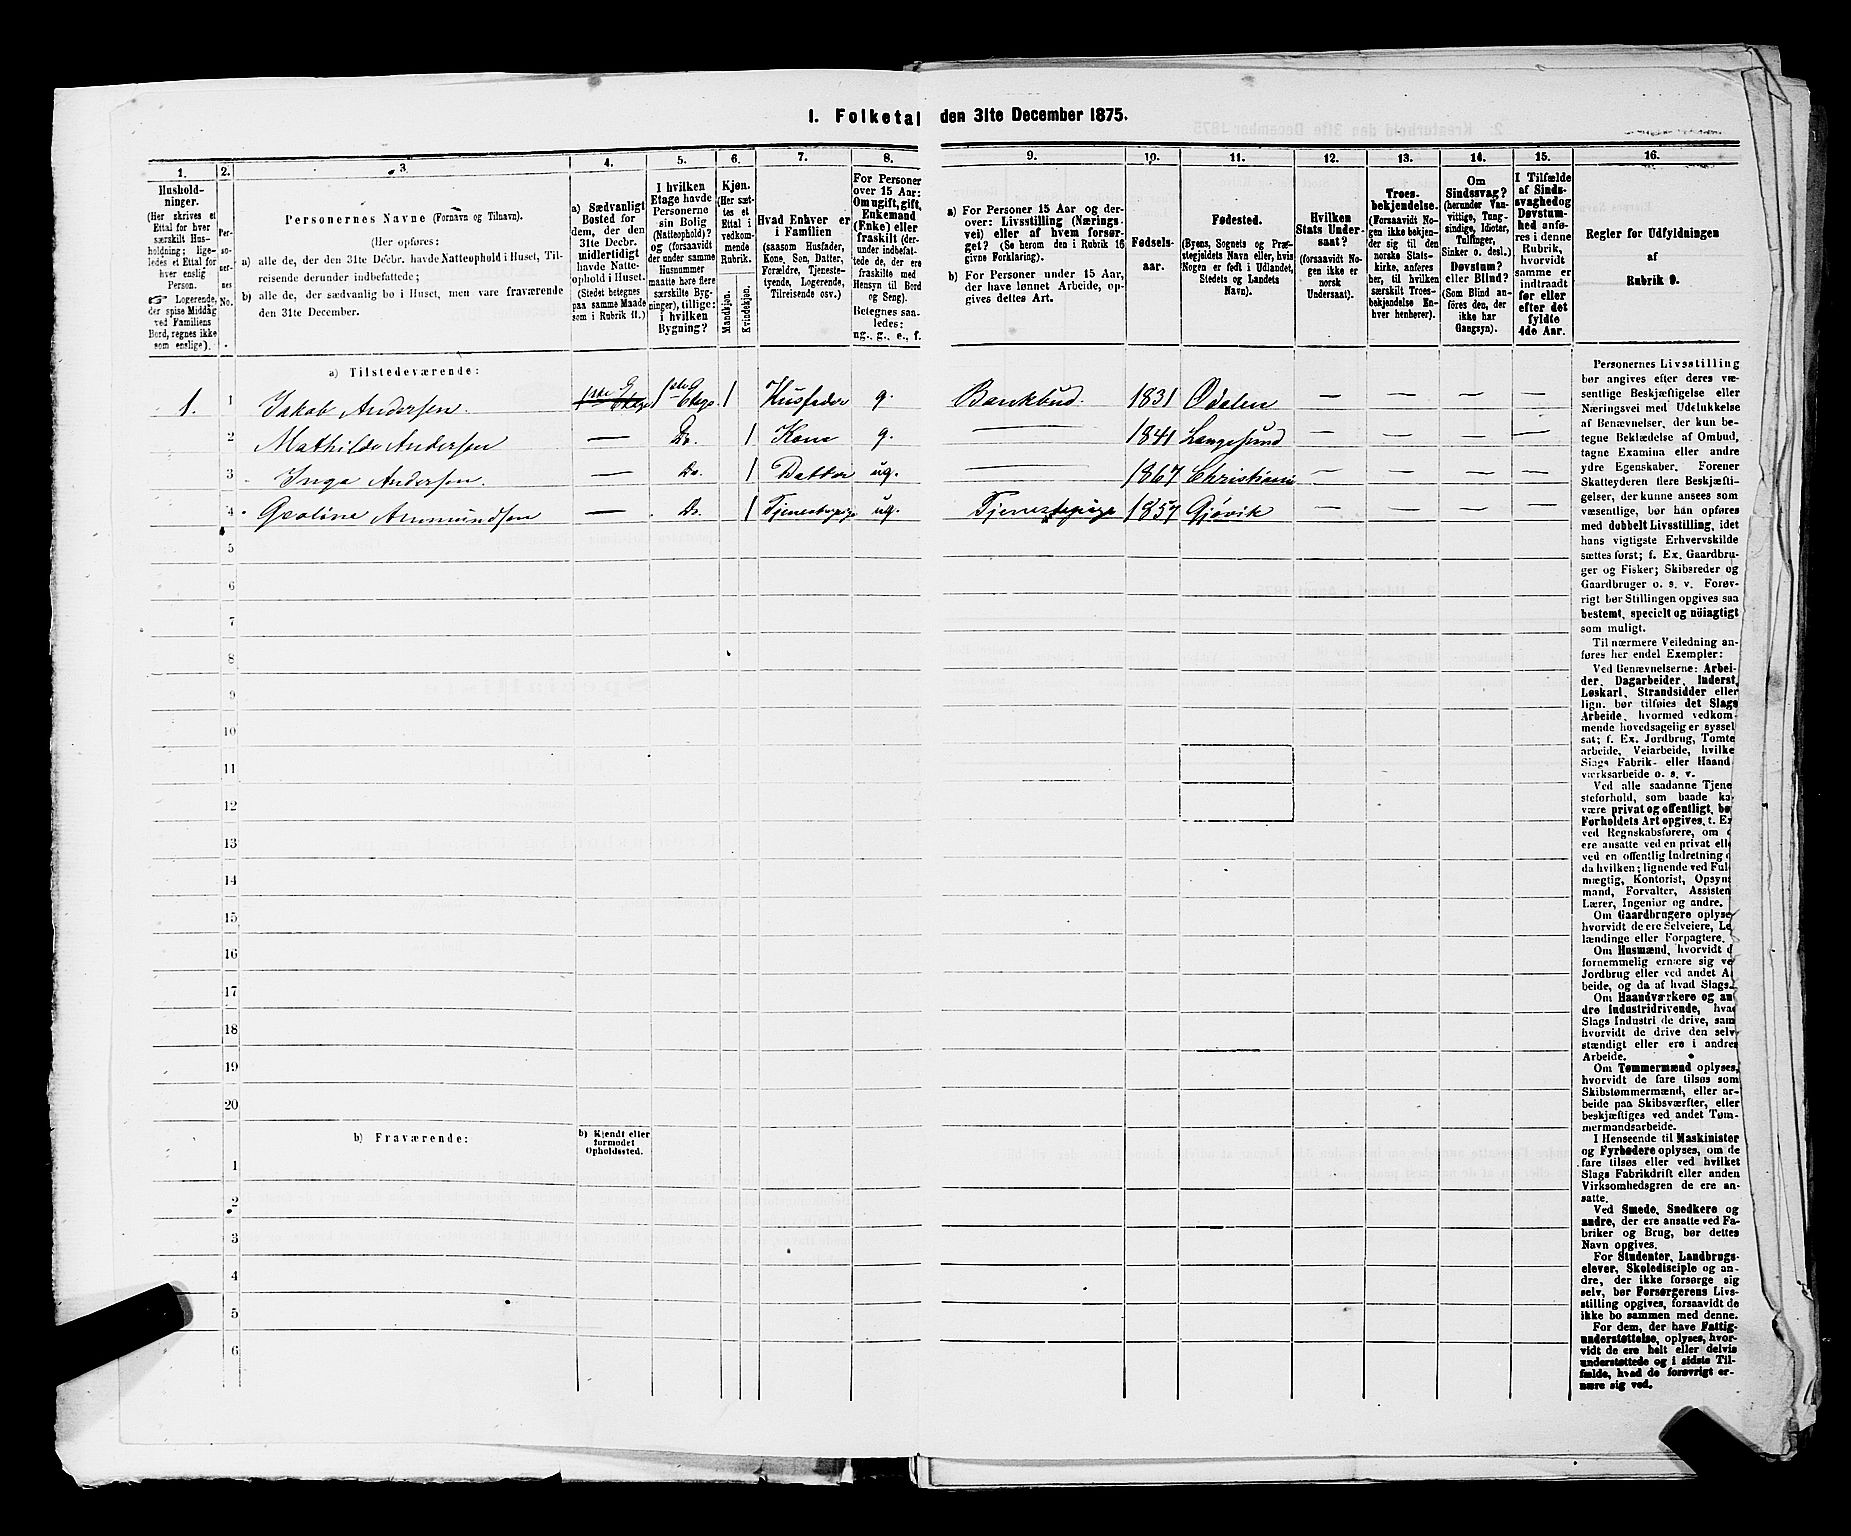 1. Folketal den 31te December 1875.
1.
Husholdninger.
(Her skrives et
Ettal for hver
særskilt Husholdning; ligeledes et Ettal for
hver enslig
Person.
Logerende,
der spise Middag
ved Familiens
Bord, regnes ikke
som enslige).
2.
Personernes
No.
3.
Personernes Navne (Fornavn og Tilnavn).
(Her opføres:
a) alle de, der den 31te Decbr. havde Natteophold i Huset, Tilreisende derunder indbefattede;
b) alle de, der sædvanlig bo i Huset, men vare fraværende
den 31te December.
4.
a) Sædvanligt
Bosted for
dem, der den
31te Decbr.
midlertidigt
havde Natteophold i Huset.
(Stedet betegnes
paa samme Maade
som i Rubrik 11.)
5.
I hvilken
Etage havde
Personerne
sin Bolig
(Natteophold)?
og (forsaavidt
der under samme
Husnummer
maatte høre flere
særskilte Bygninger), tillige:
i hvilken
Bygning?
6.
Kjøn.
(Her sættes et
Ettal i
vedkommende
Rubrik.
Mandkjøn.
Kvindekjøn.
7.
Hvad Enhver er
i Familien
(saasom Husfader,
Kone, Søn, Datter,
Forældre, Tjenestetyende, Logerende,
Tilreisende osv.)
8.
For Personer
over 15 Aar:
Om ugift, gift,
Enkemand
(Enke) eller
fraskilt (derunder indbefattede de, der ere
fraskilte med
Hensyn til Bord
og Seng).
Betegnes saaledes:
ug., g., e., f.
9.
a) For Personer 15 Aar og derover: Livsstilling (Næringsvei) eller af hvem forsørget? (Se herom den i Rubrik 16
givne Forklaring).
b) For Personer under 15 Aar,
der have lønnet Arbeide, opgives dettes Art.
10.
Fødselsaar.
11.
Fødested.
(Byens, Sognets og Præstegjeldets Navn eller, hvis
Nogen er født i Udlandet,
Stedets og Landets
Navn).
12.
Hvilken
Stats Undersaat?
(forsaavidt Nogen ikke er
norsk
Undersaat).
13.
Troesbekjendelse.
(Forsaavidt Nogen ikke bekjender sig til den
norske Statskirke, anføres
her, til hvilken
særskilt Troesbekjendelse Enhver henhører).
14.
Om
Sindssvag?
(herunder Vanvittige, Tungsindige, Idioter,
Tullinger,
Sinker o. desl.)
Døvstum?
eller Blind?
(Som Blind anføres den, der
ikke har
Gangsyn).
15.
I Tilfælde
af Sindssvaghed og
Døvstumhed anføres i denne
Rubrik,
hvorvidt
samme er
indtraadt
før eller
efter det
fyldte
4de Aar.
16.
Regler for Udfyldningen
af
Rubrik 9.
a) Tilstedeværende:
1. 1 Jakob Andersen. 1ste Etage 1ste Etage 1 Husfader g. Bankbud. 1831 Odalen — — — —
2 Mathilde Andersen — Do. 1 Kone g. — 1841 Langesund — — — —
3 Inga Andersen. — Do. 1 Datter ug. — 1867 Christiania — — — —
4 Ammundsen — Do. 1 Tjenestepige ug. Tjenestepige 1857 Gjøvik — — — —
5
6
7
8
9
10
11
12
13
14
15
16
17
18
19
20
b) Fraværende:
b) Kjendt eller
formodet
Opholdssted.
1
2
3
4
5
6
Personernes Livsstilling
bør angives efter deres væsentlige Beskjæftigelse eller
Næringsvei med Udelukkelse
af Benævnelser, der kun betegne Beklædelse af Ombud,
tagne Examina eller andre
ydre Egenskaber. Forener
Skatteyderen flere Beskjæftigelser, der kunne ansees som
væsentlige, bør han opføres
med dobbelt Livsstilling, idet
hans vigtigste Erhvervskilde
sættes først; f. Ex. Gaardbruger og Fisker; Skibsreder og
Gaardbruger o. s. v. Forøvrigt bør Stillingen opgives saa
bestemt, specielt og nöiagtigt
som muligt.
Til nærmere Veiledning anføres her endel Exempler:
Ved Benævnelserne: Arbeider, Dagarbeider, Inderst,
Løskarl, Strandsidder eller
lign. bør tilføies det Slags
Arbeide, hvormed vedkommende hovedsagelig er sysselsat; f. Ex. Jordbrug, Tomtearbeide, Veiarbeide, hvilke
Slags Fabrik- eller Haandværksarbeide o. s. v.
Ved alle saadanne Tjenesteforhold, som baade ka
være privat og offentligt, bø
Forholdets Art opgives, t. Ex
ved Regnskabsførere, om d
ere ansatte ved en privat elle
ved en offentlig Indretning o
da hvilken; lignende ved Fulmægtig, Kontorist, Opsynsmand, Forvalter, Assistent
Lærer, Ingeniør og andre.
Om Gaardbrugere oplyses
hvorvidt de ere Selveiere, Leilændinge eller Forpagtere.
Om Husmænd, hvorvidt d
fornemmelig ernære sig ve
Jordbrug eller ved andet Arbeide, og da af hvad Slags.
Om Haandværkere og andre Industridrivende, hvad
Slags Industri de drive, samt
hvorvidt de drive den selvstændigt eller ere i andres
Arbeide.
Om Tømmermænd oplyses,
hvorvidt de fare tilsøs som
Skibstømmermænd, eller arbeide paa Skibsværfter, eller
beskjæftiges ved andet Tømmermandsarbeide.
I Henseende til Maskinister
og Fyrbødere oplyses, om de
fare tilsøs eller ved hvilket
Slags Fabrikdrift eller anden
Virksomhedsgren de ere ansatte.
Ved Smede, Snedkere og
andre, der ere ansatte ved Fabriker og Brug, bør dettes
Navn opgives.
For Studenter, Landbrugselever, Skoledisciple og andre, der ikke forsørge sig
selv, bør Forsørgerens Livsstilling opgives, forsaavidt de
ikke bo sammen med denne.
For dem, der have Fattigunderstøttelse, oplyses, hvorvidt de ere helt eller delvis
understøttede og i sidste Tilfælde, hvad de forøvrigt ernære sig ved.